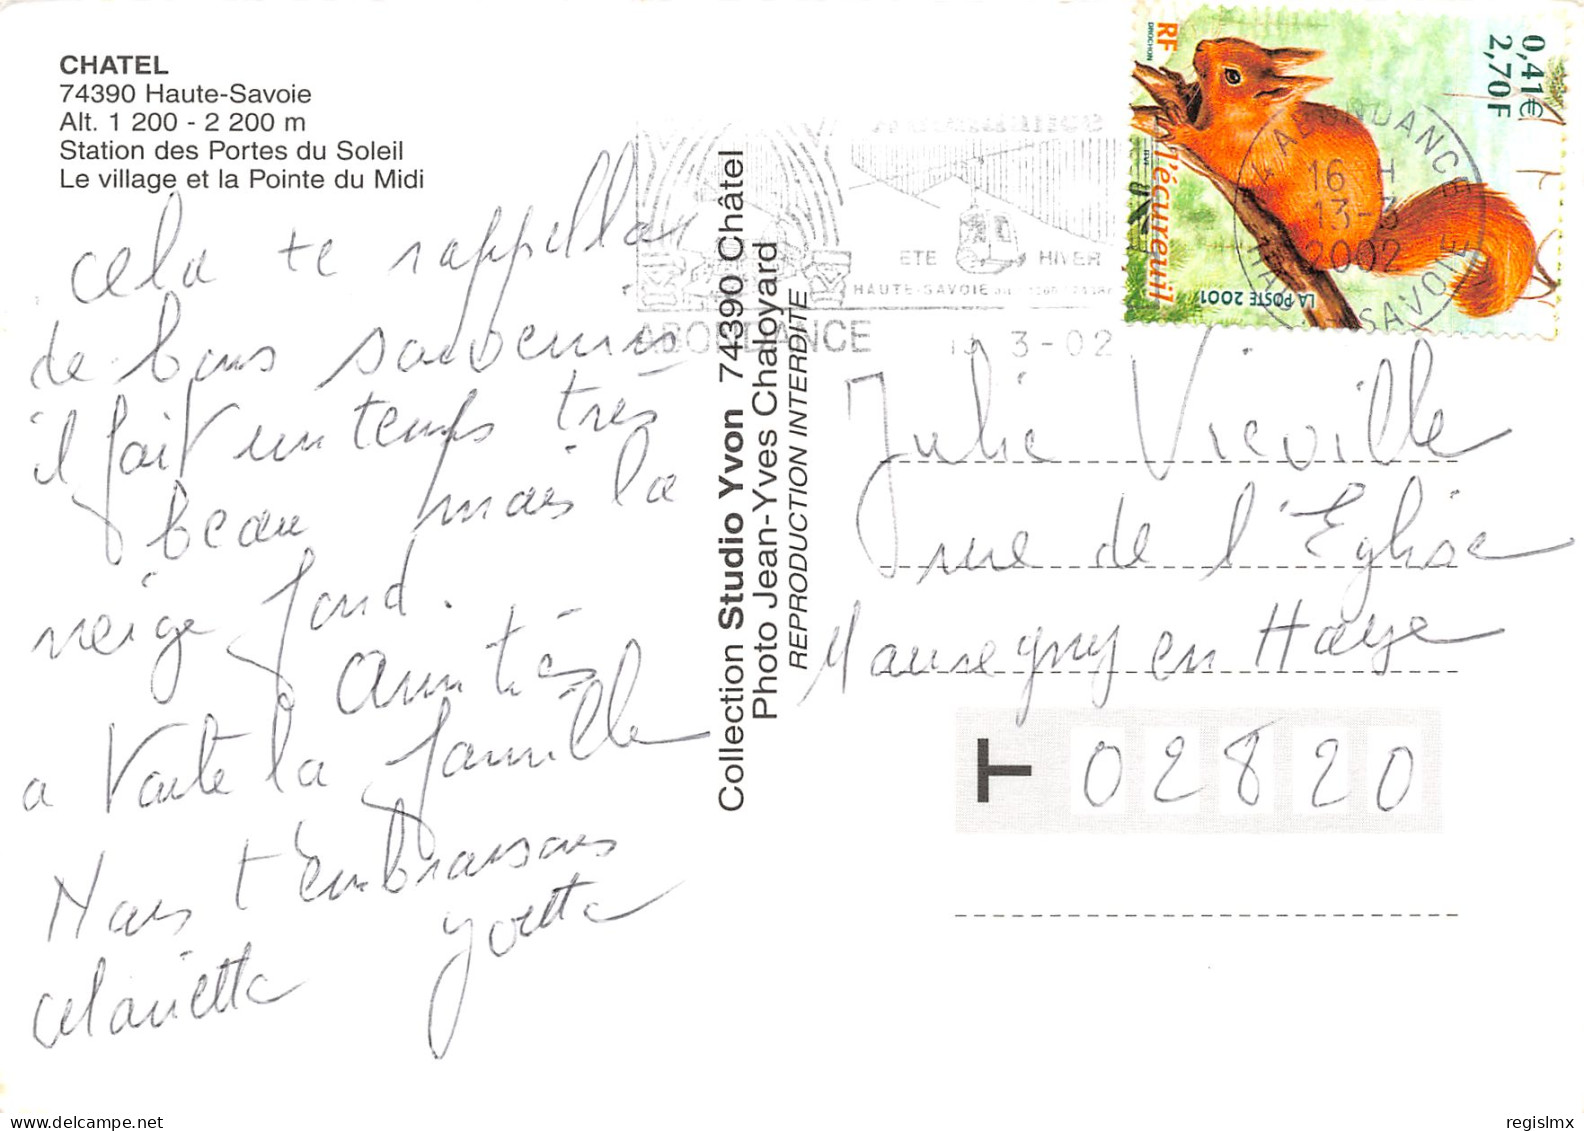 CHATEL
74390 Haute-Savoie
Alt. 1 200 - 2 200 m
Station des Portes du Soleil
Le village et la Pointe du Midi
cela te rappellera
de bons souvenirs
il fait un temps très
beau mais la
neige fond.
Amitiés
a toute la famille
Nous t'embrassons
Yvette
Collection Studio Yvon 74390 Châtel
Photo Jean-Yves Chaloyard
REPRODUCTION INTERDITE
ETE HIVER
HAUTE-SAVOIE
ABONDANCE
13-3-02
RF
DROCHON
ITVF
l'écureuil
0,41€
2,70F
LA POSTE 2001
L'ABONDANCE
16 H
13-3
2002
HAUTE SAVOIE
Julie Viéville
rue de l'Eglise
Mauregny en Haye
T 02820
regislmx